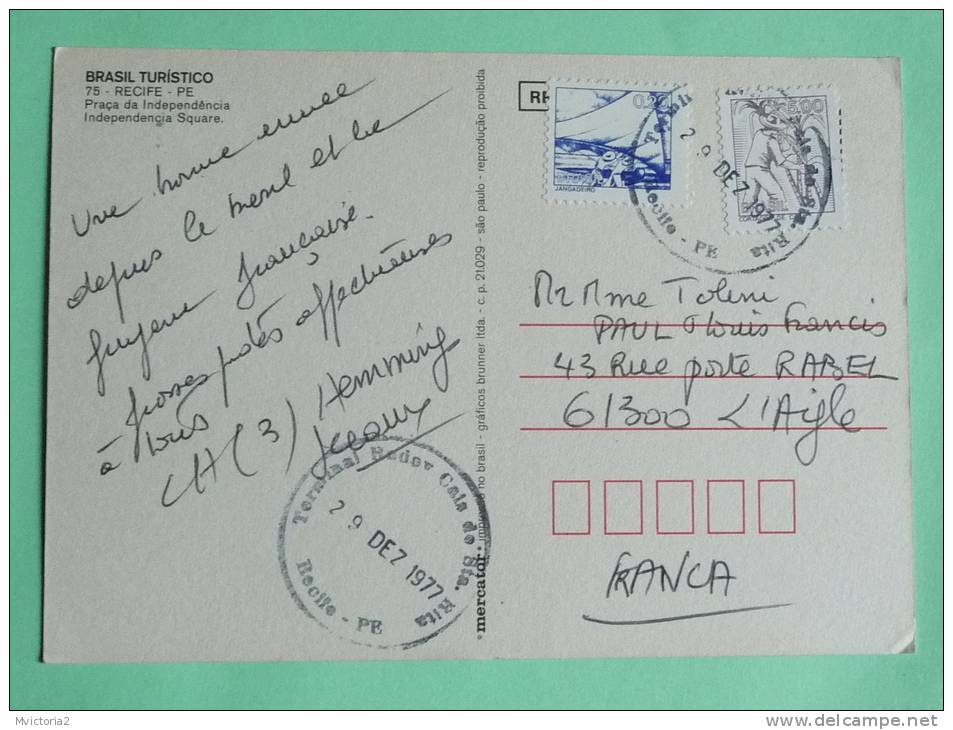 BRASIL TURÍSTICO
75 - RECIFE - PE
Praça da Independência
Independencia Square.
Une bonne année
depuis le Brésil et la
française.
affectueuses
à tous
(3) Hemming
mercator · impresso no brasil - gráficos brunner ltda. - c. p. 21.029 - são paulo - reprodução proibida
0,20
JANGADEIRO
5,00
Recife - PE
29 DEZ 1977
Sta. Rita
Mr Mme Tolini
PAUL Louis Francis
43 Rue porte RABEL
61300 L'Aigle
FRANCA
Terminal Rodov Cais de Sta. Rita
29 DEZ 1977
Recife - PE
Mvictoria2
delcampe.net